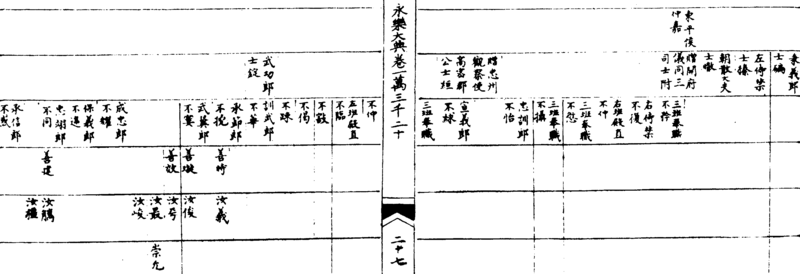 東平侯
仲嘉
秉義郎
士鴻
左侍禁
士𦡱
朝散大夫
士暾
贈開府
儀同三
司士附
贈忠州
觀察使
高密郡
公士㙐
三班奉職
不矜
右侍禁
不復
右班殿直
不忡
三班奉職
不愆
三班奉職
不攝
忠訓郎
不怡
宣義郎
不球
三班奉職
永樂大典卷一萬三千二十
二十七
武功郎
士錠
不忡
左班殿直
不臨
不敵
不偈
不竦
訓武郎
不華
承節郎
不挽
武翼郎
不寠
成忠郎
不耀
保義郎
不退
忠翊郎
不同
承信郎
善時
善璇
善啟
善建
汝義
汝俊
汝哥
汝最
汝峻
汝鵬
汝檀
崇九